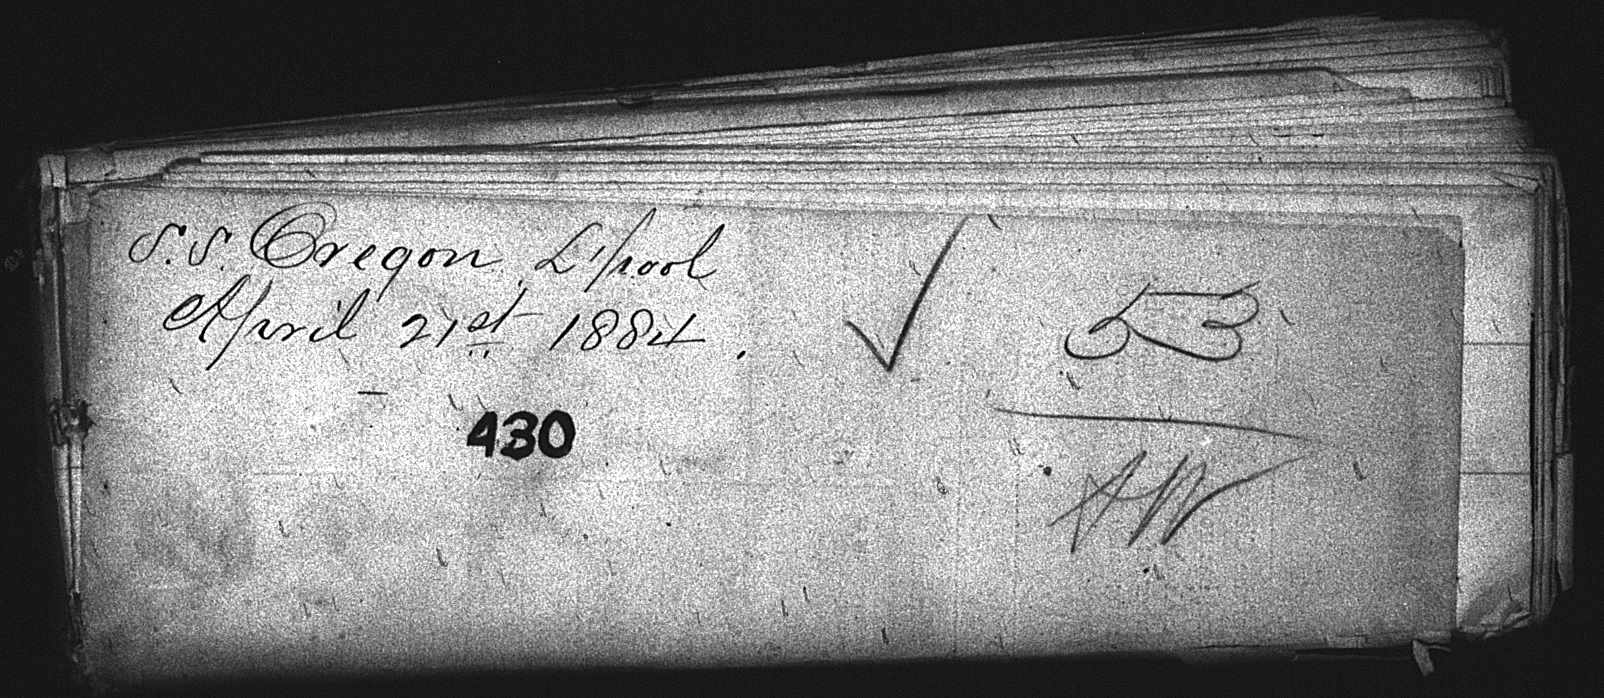 S.S. Oregon L'pool
April 21st 1884.
430
✓
53
AW